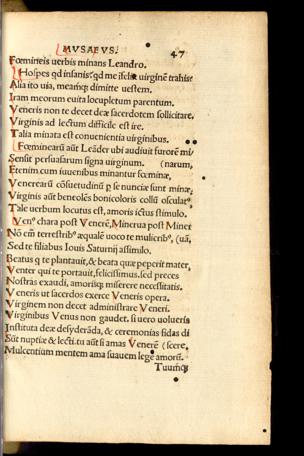 MUSAEUS. 47
Fœmineis uerbis minans Leandro.
Hospes qd insanis? qd me ifelix virginē trahis?
Alia ito uia, meamq; dimitte uestem.
Iram meorum euita locupletum parentum.
Veneris non te decet deæ sacerdotem sollicitare.
Virginis ad lectum difficile est ire.
Talia minata est conuenientia virginibus.
Fœminearū aūt Leāder ubi audiuit furorē mi/
Sensit persuasarum signa uirginum. (narum,
Etenim cum iuuenibus minantur fœminæ,
Venerearū cōsuetudinū p se nunciæ sunt minæ;
Virginis aūt beneolēs bonicoloris collū osculatꝰ,
Tale uerbum locutus est, amoris ictus stimulo.
Venꝰ chara post Venerē, Minerua post Miner
Nō em̄ terrestribꝰ æqualē uoco te mulieribꝰ, (uā,
Sed te filiabus Iouis Saturnij assimilo.
Beatus q te plantauit, & beata quæ peperit mater,
Venter qui te portauit, felicissimus. sed preces
Nostras exaudi, amorisq; miserere necessitatis.
Veneris ut sacerdos exerce Veneris opera.
Virginem non decet administrare Veneri.
Virginibus Venus non gaudet. si uero uolueris
Instituta deæ desyderāda, & ceremonias fidas di
Sūt nuptiæ & lecti. tu aūt si amas Venerē (scere,
Mulcentium mentem ama suauem lege amorū.
Tuumq;